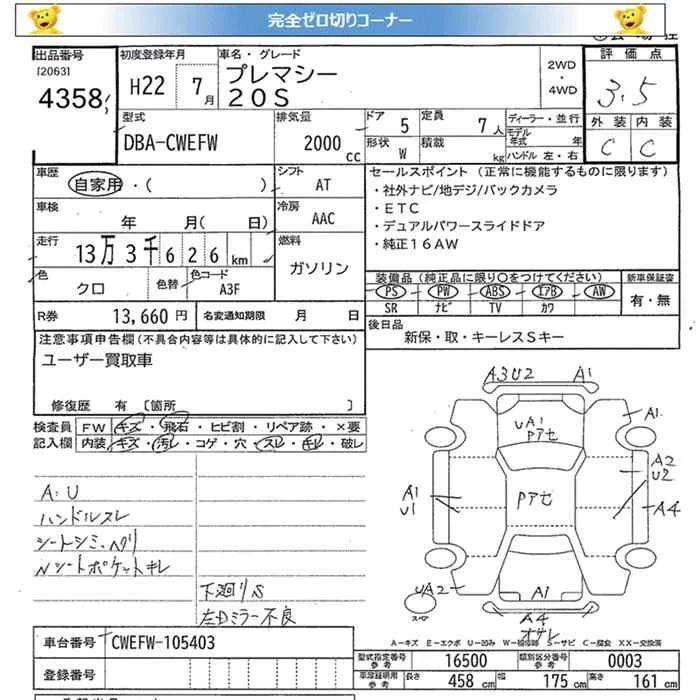 完全ゼロ切りコーナー
出品番号
[2063]
4358
初度登録年月
H22 7月
車名・グレード
プレマシー
20S
2WD
・
4WD
評価点
3.5
外装 内装
C C
型式
DBA-CWEFW
排気量
2000 cc
ドア 5
定員 7人
形状 W
積載 kg
ディーラー・並行
モデル年式 年
ハンドル 左・右
車歴
自家用・( )
シフト AT
車検 年 月( 日)
冷房 AAC
走行 13万3千626km
燃料 ガソリン
色 クロ
色替
色コード A3F
R券 13,660 円
名変通知期限 月 日
セールスポイント (正常に機能するものに限ります)
・社外ナビ/地デジ/バックカメラ
・ETC
・デュアルパワースライドドア
・純正16AW
装備品(純正品に限り○をつけてください)
PS PW ABS エアB AW
SR ナビ TV カワ
新車保証書
有・無
後日品
新保・取・キーレスSキー
注意事項申告欄(不具合内容等は具体的に記入して下さい)
ユーザー買取車
修復歴 有 〔箇所 〕
検査員記入欄
FW キズ・飛石・ヒビ割・リペア跡・×要
内装 キズ・汚レ・コゲ・穴・スレ・キレ・破レ
A:U
ハンドルスレ
シートシミ、ヘタリ
Nシートポケットキレ
下廻りS
左Dミラー不良
A3U2 A1
A1
UA1
Pアセ
A2
U2
Pアセ
A1
U1
A4
UA2
A1
A4
オサレ
スペア
A－キズ E－エクボ U－凹み W－補修跡 S－サビ C－腐食 XX－交換済
車台番号 CWEFW-105403
登録番号
型式指定番号 参考 16500
類別区分番号 参考 0003
車庫証明用 参考 長さ 458 cm 幅 175 cm 高さ 161 cm